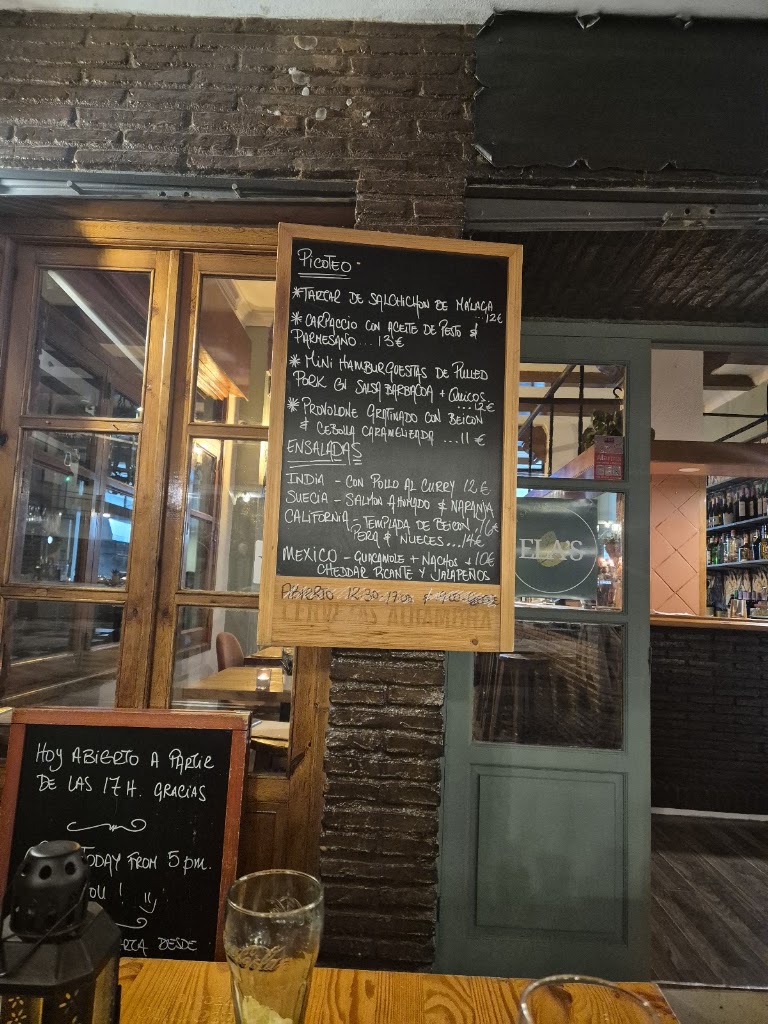 PICOTEO
*TARTAR DE SALCHICHON DE MÁLAGA
...12€
* CARPACCIO CON ACEITE DE PESTO &
PARMESANO... 13€
* MINI HAMBURGUESTAS DE PULLED
PORK CON SALSA BARBACOA + QUICOS
...12€
* PROVOLONE GRATINADO CON BEICON
& CEBOLLA CARAMELIZADA ...11€
ENSALADAS
INDIA - CON POLLO AL CURRY 12€
SUECIA - SALMON AHUMADO & NARANJA
16€
CALIFORNIA - TEMPLADA DE BEICON
PERA & NUECES...14€
MEXICO - GUACAMOLE + NACHOS + 10€
CHEDDAR PICANTE Y JALAPEÑOS
ABIERTO 12.30-17:00
ELAS
HOY ABIERTO A PARTIR
DE LAS 17H. GRACIAS
TODAY FROM 5 pm.
YOU!
DESDE
Coca-Cola